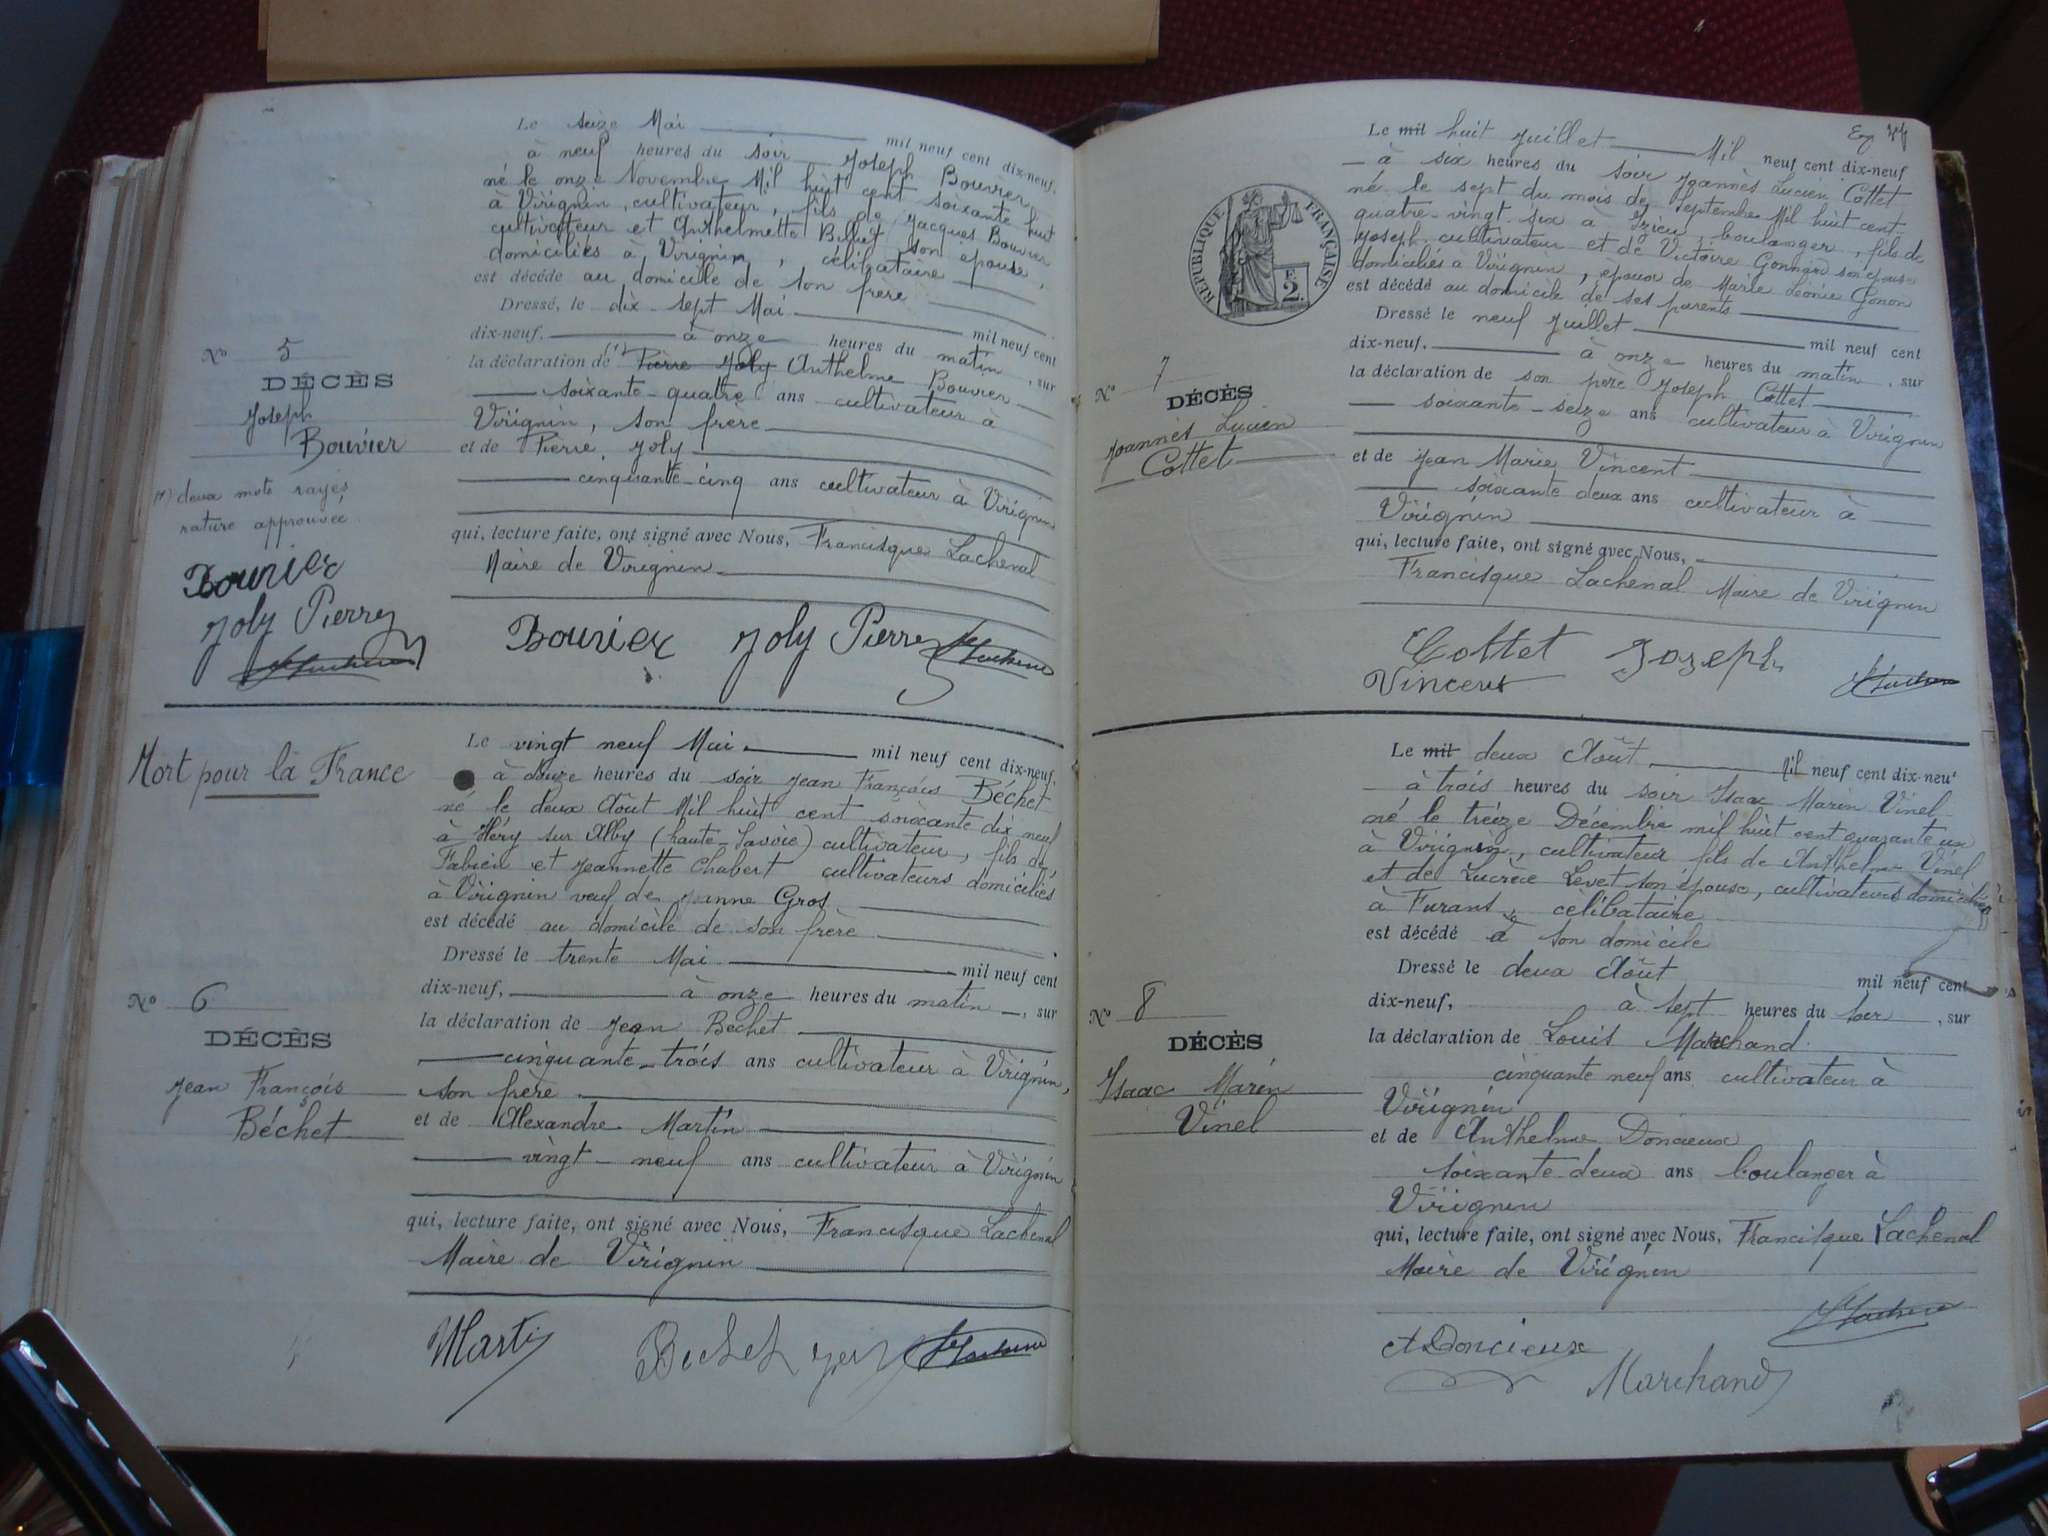 Le seize Mai mil neuf cent dix-neuf,
à neuf heures du soir Joseph Bouvier
né le onze Novembre Mil huit cent soixante huit
à Virignin, cultivateur, fils de Jacques Bouvier
cultivateur et Anthelmette Billet son épouse,
domiciliés à Virignin, célibataire
est décédé au domicile de son frère
Dressé, le dix-sept Mai mil neuf cent
dix-neuf, à onze heures du matin, sur
la déclaration de (1) Pierre Joly Anthelme Bouvier
soixante-quatre ans cultivateur à
Virignin, son frère
et de Pierre Joly
cinquante-cinq ans cultivateur à Virignin
qui, lecture faite, ont signé avec Nous, Francisque Lachenal
Maire de Virignin
Bouvier Joly Pierre
N° 5
DÉCÈS
Joseph
Bouvier
(1) deux mots rayés
rature approuvée
Bouvier
Joly Pierre
Mort pour la France
Le vingt neuf Mai mil neuf cent dix-neuf,
à douze heures du soir Jean François Béchet
né le deux Août Mil huit cent soixante dix neuf
à Héry sur Alby (haute-Savoie) cultivateur, fils de
Fabien et Jeannette Chabert cultivateurs domiciliés
à Virignin veuf de Gros
est décédé au domicile de son frère
Dressé le trente Mai mil neuf cent
dix-neuf, à onze heures du matin, sur
la déclaration de Jean Béchet
cinquante-trois ans cultivateur à Virignin,
son frère
et de Alexandre Martin
vingt-neuf ans cultivateur à Virignin
qui, lecture faite, ont signé avec Nous, Francisque Lachenal
Maire de Virignin
N° 6
DÉCÈS
Jean François
Béchet
Marti Bechet
RÉPUBLIQUE FRANÇAISE
2 F.
Le mil huit Juillet Mil neuf cent dix-neuf
à six heures du soir Joannès Lucien Cottet
né le sept du mois de Septembre Mil huit cent
quatre-vingt-six à Izieu, boulanger, fils de
Joseph cultivateur et de Victoire Gonnard son épouse
domiciliés à Virignin, époux de Marie Léonie Gonon
est décédé au domicile de ses parents
Dressé le neuf Juillet mil neuf cent
dix-neuf, à onze heures du matin, sur
la déclaration de son père Joseph Cottet
soixante-seize ans cultivateur à Virignin
et de Jean Marie Vincent
soixante deux ans cultivateur à
Virignin
qui, lecture faite, ont signé avec Nous,
Francisque Lachenal Maire de Virignin
Cottet Joseph
Vincent
N° 7
DÉCÈS
Joannès Lucien
Cottet
Le mil deux Août Mil neuf cent dix-neuf
à trois heures du soir Isaac Marin Vinel
né le treize Décembre mil huit cent quarante un
à Virignin, cultivateur fils de Anthelme Vinel
et de Lucrèce Levet son épouse, cultivateurs domiciliés
à Furans, célibataire
est décédé à son domicile
Dressé le deux Août mil neuf cent
dix-neuf, à sept heures du soir, sur
la déclaration de Louis Marchand
cinquante neuf ans cultivateur à
Virignin
et de Anthelme Doncieux
soixante-deux ans boulanger à
Virignin
qui, lecture faite, ont signé avec Nous, Francisque Lachenal
Maire de Virignin
N° 8
DÉCÈS
Isaac Marin
Vinel
A Doncieux
Marchand